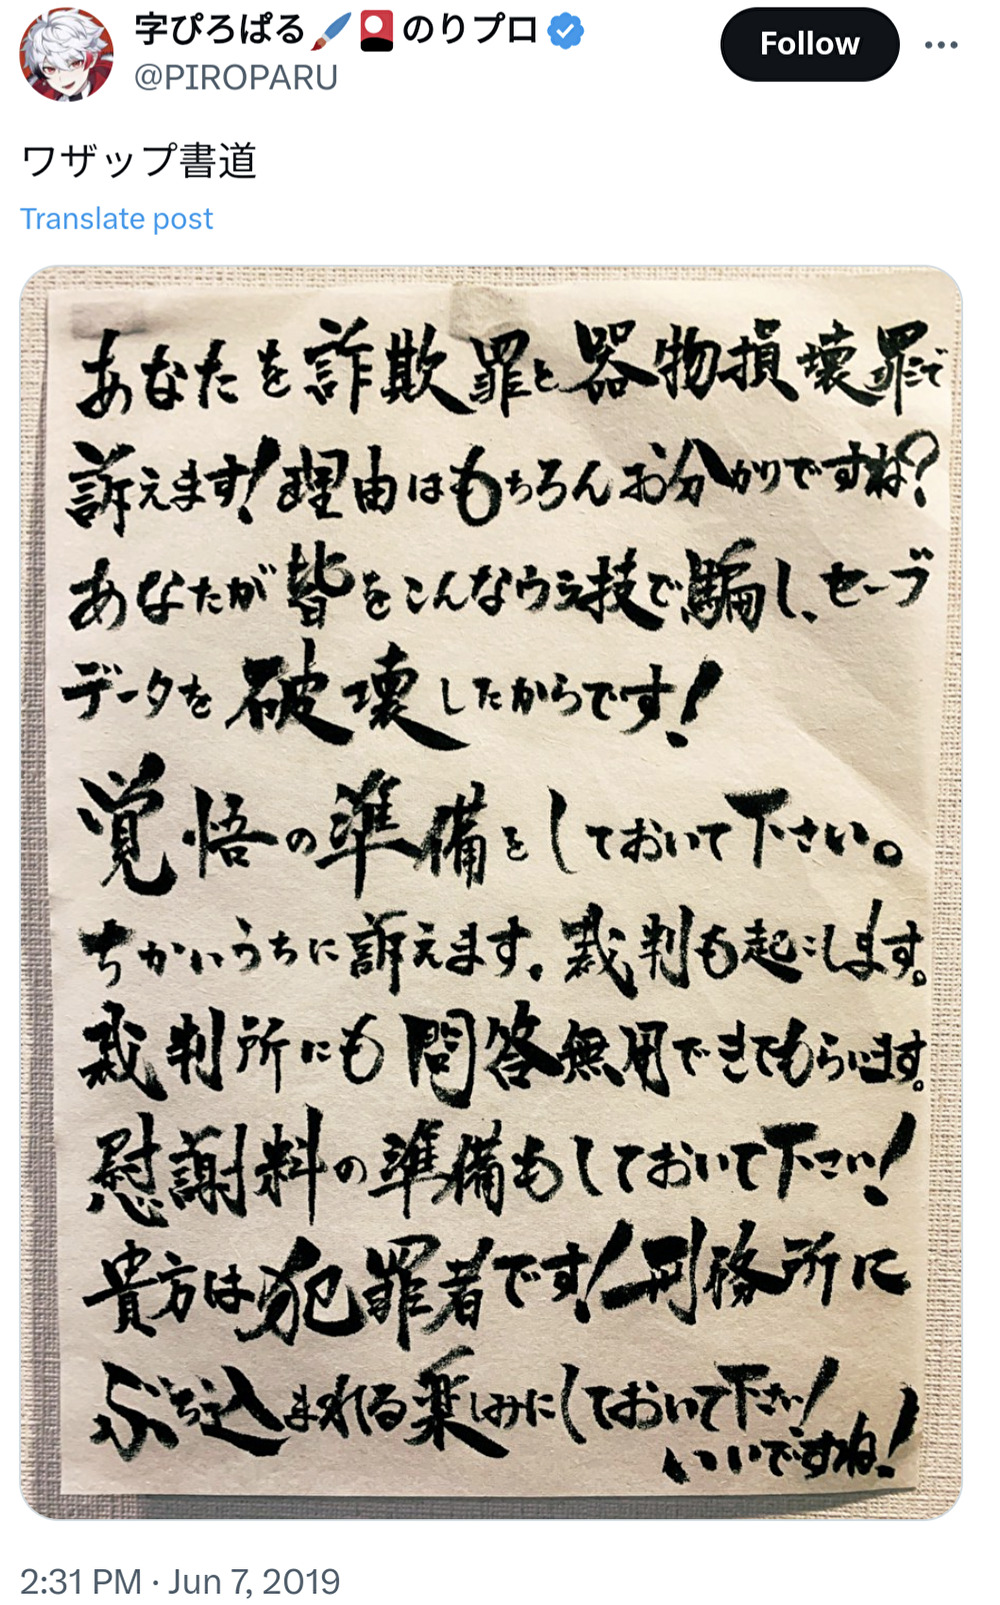 字ぴろぱる🖌️🎴のりプロ
@PIROPARU
Follow
ワザップ書道
Translate post
あなたを詐欺罪と器物損壊罪で
訴えます!理由はもちろんお分かりですね?
あなたが皆をこんなウラ技で騙し、セーブ
データを破壊したからです!
覚悟の準備をしておいて下さい。
ちかいうちに訴えます。裁判も起こします。
裁判所にも問答無用できてもらいます。
慰謝料の準備もしておいて下さい!
貴方は犯罪者です!刑務所に
ぶち込まれる楽しみにしておいて下さい!
いいですね!
2:31 PM · Jun 7, 2019